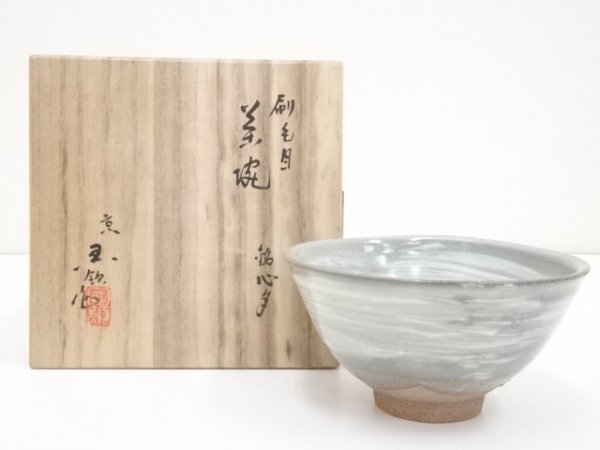 刷毛目
茶碗
銘 心月
京
玉鉱 作